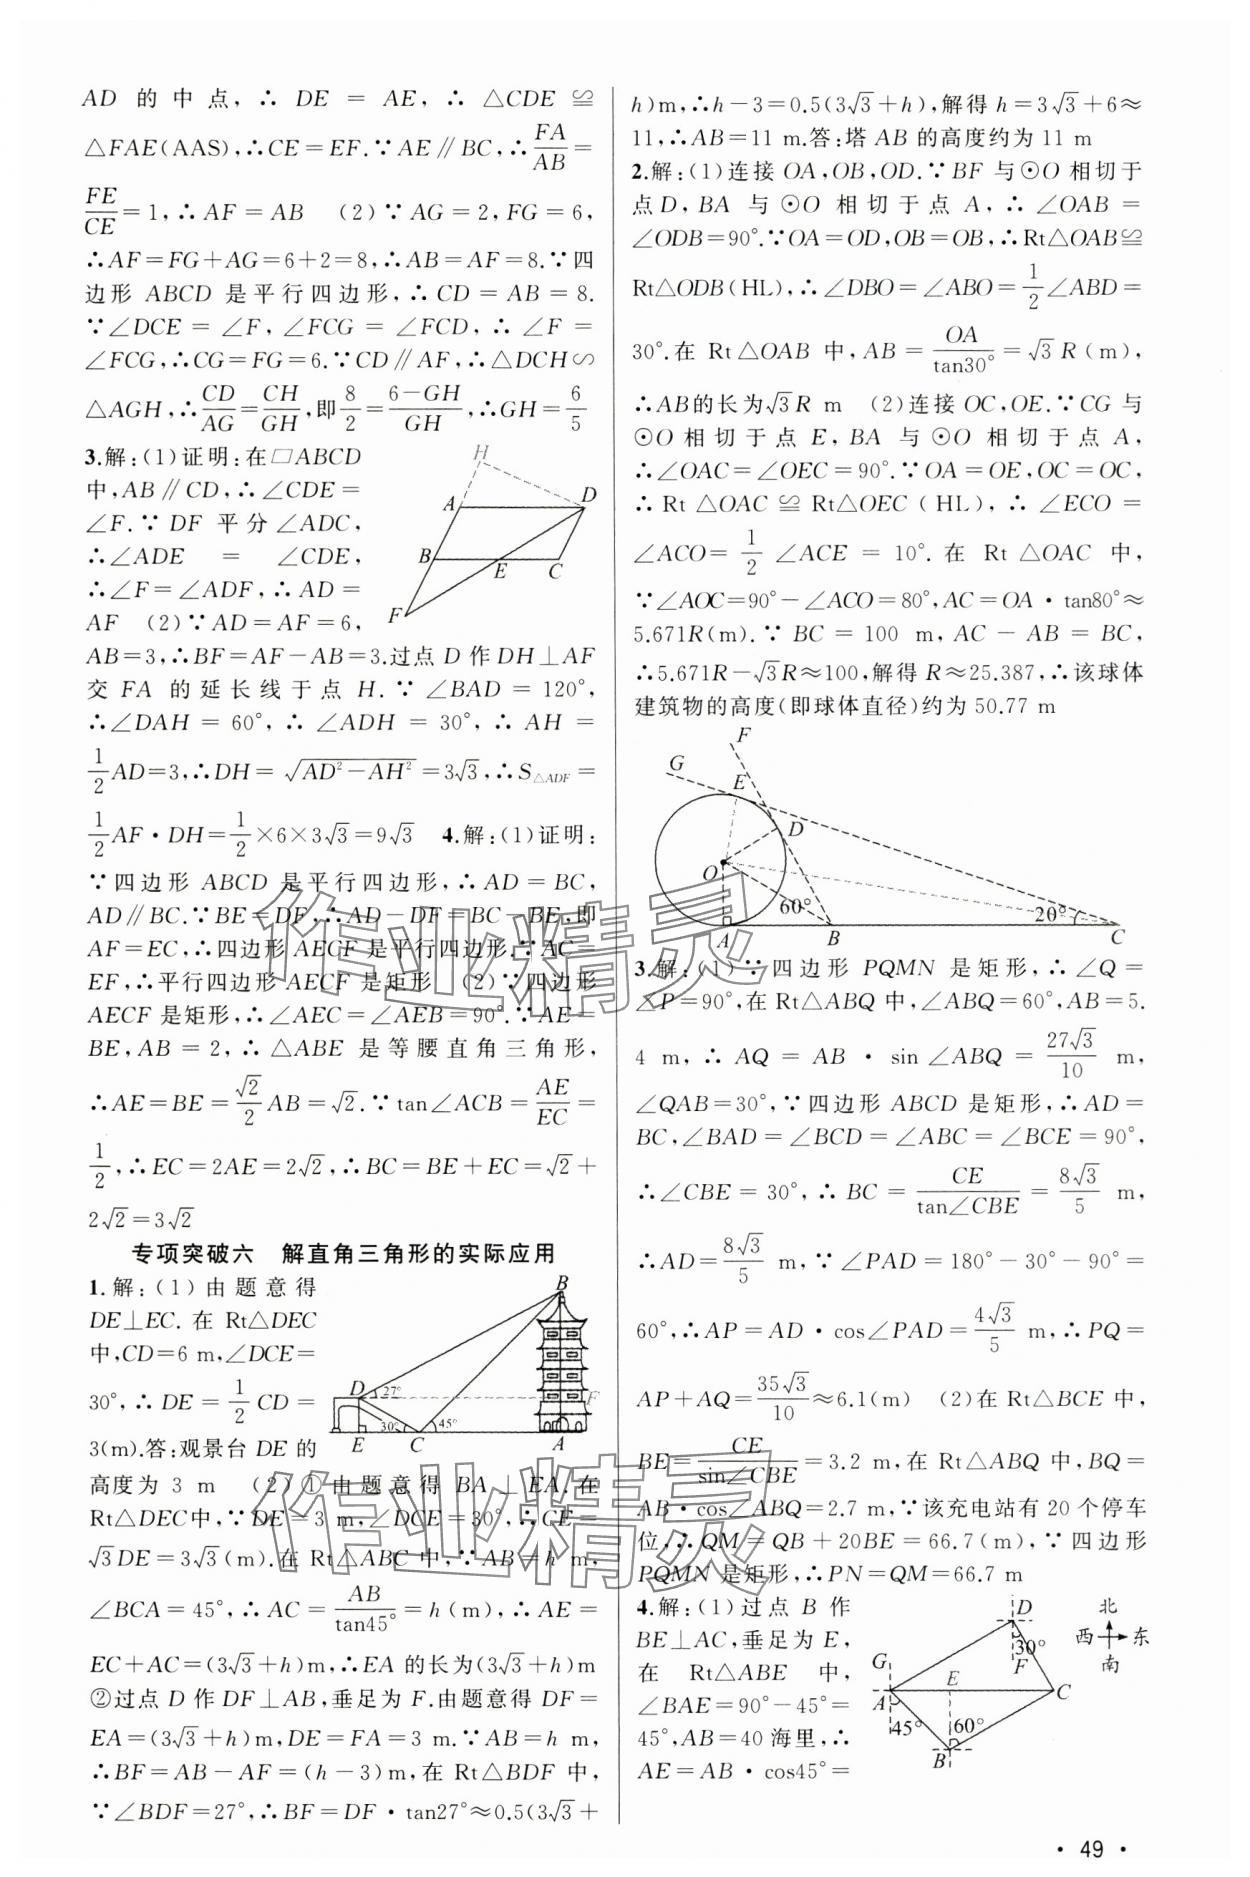 AD 的中点,∴ DE = AE,∴ △CDE ≌
△FAE(AAS),∴CE=EF.∵AE∥BC,∴FA/AB=
FE/CE=1,∴AF=AB (2)∵AG=2,FG=6,
∴AF=FG+AG=6+2=8,∴AB=AF=8.∵四
边形 ABCD 是平行四边形,∴CD=AB=8.
∵∠DCE=∠F,∠FCG=∠FCD,∴∠F=
∠FCG,∴CG=FG=6.∵CD∥AF,∴△DCH∽
△AGH,∴CD/AG=CH/GH,即8/2=(6-GH)/GH,∴GH=6/5
3.解:(1)证明:在▱ABCD
中,AB∥CD,∴∠CDE=
∠F.∵DF 平分∠ADC,
∴∠ADE = ∠CDE,
∴∠F=∠ADF,∴AD=
AF (2)∵AD=AF=6,
H
A
D
B
E
C
F
AB=3,∴BF=AF-AB=3.过点 D 作 DH⊥AF
交 FA 的延长线于点 H.∵∠BAD=120°,
∴∠DAH=60°,∴∠ADH=30°,∴AH=
1/2AD=3,∴DH=√(AD²-AH²)=3√3,∴S△ADF=
1/2AF·DH=1/2×6×3√3=9√3 4.解:(1)证明:
∵四边形 ABCD 是平行四边形,∴AD=BC,
AD∥BC.∵BE=DF,∴AD-DF=BC-BE,即
AF=EC,∴四边形 AECF 是平行四边形.∵AC=
EF,∴平行四边形 AECF 是矩形 (2)∵四边形
AECF 是矩形,∴∠AEC=∠AEB=90°.∵AE=
BE,AB=2,∴△ABE 是等腰直角三角形,
∴AE=BE=√2/2AB=√2.∵tan∠ACB=AE/EC=
1/2,∴EC=2AE=2√2,∴BC=BE+EC=√2+
2√2=3√2
专项突破六 解直角三角形的实际应用
1.解:(1)由题意得
DE⊥EC.在 Rt△DEC
中,CD=6 m,∠DCE=
30°,∴DE=1/2CD=
3(m).答:观景台 DE 的
B
D
27°
F
30°
45°
E
C
A
高度为 3 m (2)①由题意得 BA⊥EA.在
Rt△DEC中,∵DE=3 m,∠DCE=30°,∴CE=
√3DE=3√3(m).在 Rt△ABC 中,∵AB=h m,
∠BCA=45°,∴AC=AB/tan45°=h(m),∴AE=
EC+AC=(3√3+h)m,∴EA 的长为(3√3+h)m
②过点 D 作 DF⊥AB,垂足为 F.由题意得 DF=
EA=(3√3+h)m,DE=FA=3 m.∵AB=h m,
∴BF=AB-AF=(h-3)m,在 Rt△BDF 中,
∵∠BDF=27°,∴BF=DF·tan27°≈0.5(3√3+
h)m,∴h-3=0.5(3√3+h),解得 h=3√3+6≈
11,∴AB=11 m.答:塔 AB 的高度约为 11 m
2.解:(1)连接 OA,OB,OD.∵BF 与⊙O 相切于
点D,BA 与⊙O 相切于点 A,∴∠OAB=
∠ODB=90°.∵OA=OD,OB=OB,∴Rt△OAB≌
Rt△ODB(HL),∴∠DBO=∠ABO=1/2∠ABD=
30°.在 Rt△OAB 中,AB=OA/tan30°=√3R(m),
∴AB的长为√3R m (2)连接 OC,OE.∵CG 与
⊙O 相切于点 E,BA 与⊙O 相切于点 A,
∴∠OAC=∠OEC=90°.∵OA=OE,OC=OC,
∴Rt△OAC≌Rt△OEC(HL),∴∠ECO=
∠ACO=1/2∠ACE=10°.在 Rt△OAC 中,
∵∠AOC=90°-∠ACO=80°,AC=OA·tan80°≈
5.671R(m).∵BC=100 m,AC-AB=BC,
∴5.671R-√3R≈100,解得 R≈25.387,∴该球体
建筑物的高度(即球体直径)约为 50.77 m
F
G
E
D
O
60°
20°
A
B
C
3.解:(1)∵四边形 PQMN 是矩形,∴∠Q=
∠P=90°,在 Rt△ABQ 中,∠ABQ=60°,AB=5.
4 m,∴AQ=AB·sin∠ABQ=27√3/10 m,
∠QAB=30°,∵四边形 ABCD 是矩形,∴AD=
BC,∠BAD=∠BCD=∠ABC=∠BCE=90°,
∴∠CBE=30°,∴BC=CE/tan∠CBE=8√3/5 m,
∴AD=8√3/5 m,∵∠PAD=180°-30°-90°=
60°,∴AP=AD·cos∠PAD=4√3/5 m,∴PQ=
AP+AQ=35√3/10≈6.1(m) (2)在 Rt△BCE 中,
BE=CE/sin∠CBE=3.2 m,在 Rt△ABQ 中,BQ=
AB·cos∠ABQ=2.7 m,∵该充电站有 20 个停车
位,∴QM=QB+20BE=66.7(m),∵四边形
PQMN 是矩形,∴PN=QM=66.7 m
4.解:(1)过点 B 作
BE⊥AC,垂足为 E,
在 Rt△ABE 中,
∠BAE=90°-45°=
45°,AB=40 海里,∴
AE=AB·cos45°=
D
北
西
东
南
30°
F
G
E
A
C
45°
60°
B
作业精灵
作业精灵
·49·